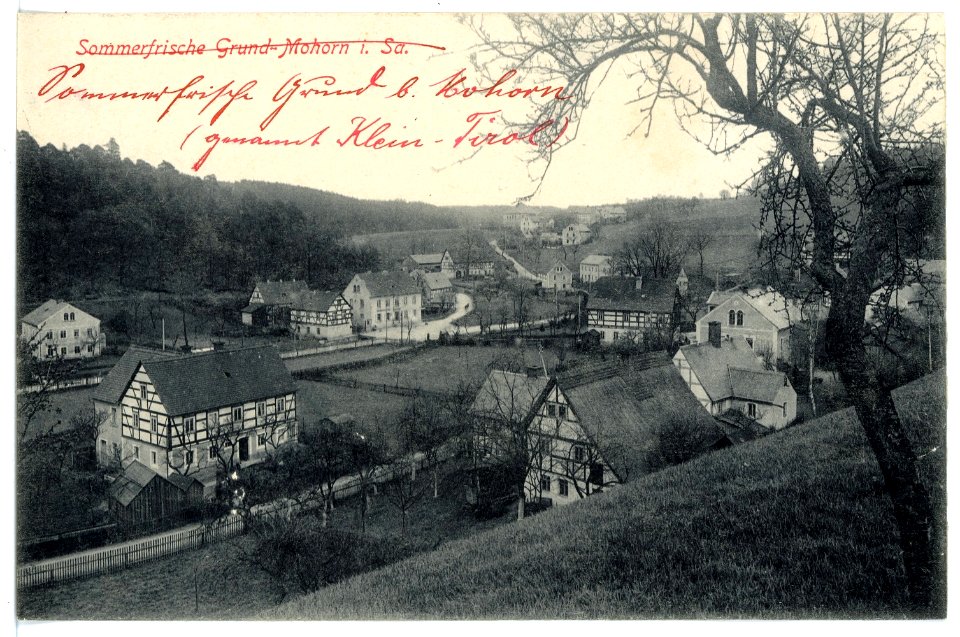 Sommerfrische Grund-Mohorn i. Sa.
Sommerfrische Grund b. Mohorn
(genannt Klein-Tirol)